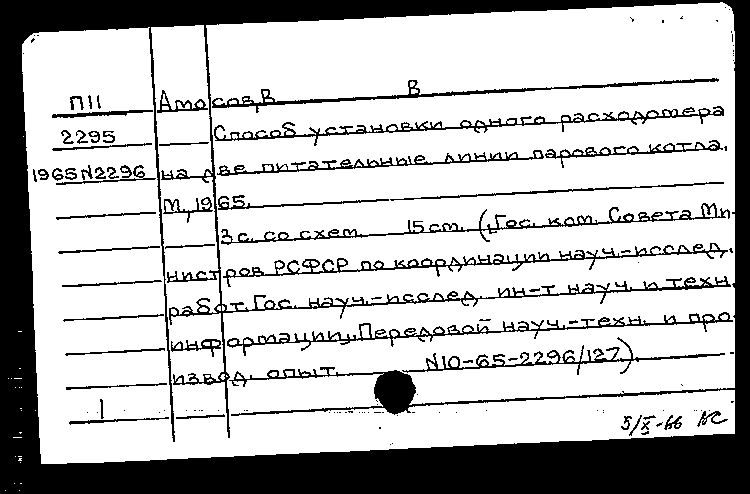 П11 Амосов, В В
2295 Способ установки одного расходомера
1965 N2296 на две питательные линии парового котла.
М., 1965.
3 с. со схем. 15 см. (Гос. ком. Совета Ми-
нистров РСФСР по координации науч.-исслед.
работ. Гос. науч.-исслед. ин-т науч. и техн.
информации. Передовой науч.-техн. и про-
извод. опыт. N10-65-2296/127).
1
5/X-66